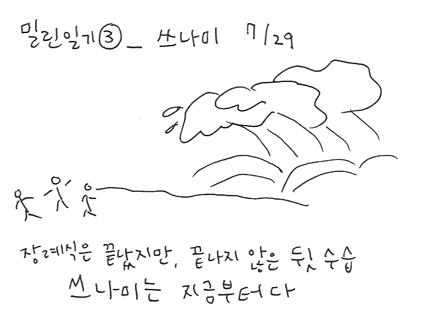 밀린일기③_ 쓰나미 7/29
장례식은 끝났지만, 끝나지 않은 뒷 수습
쓰나미는 지금부터다